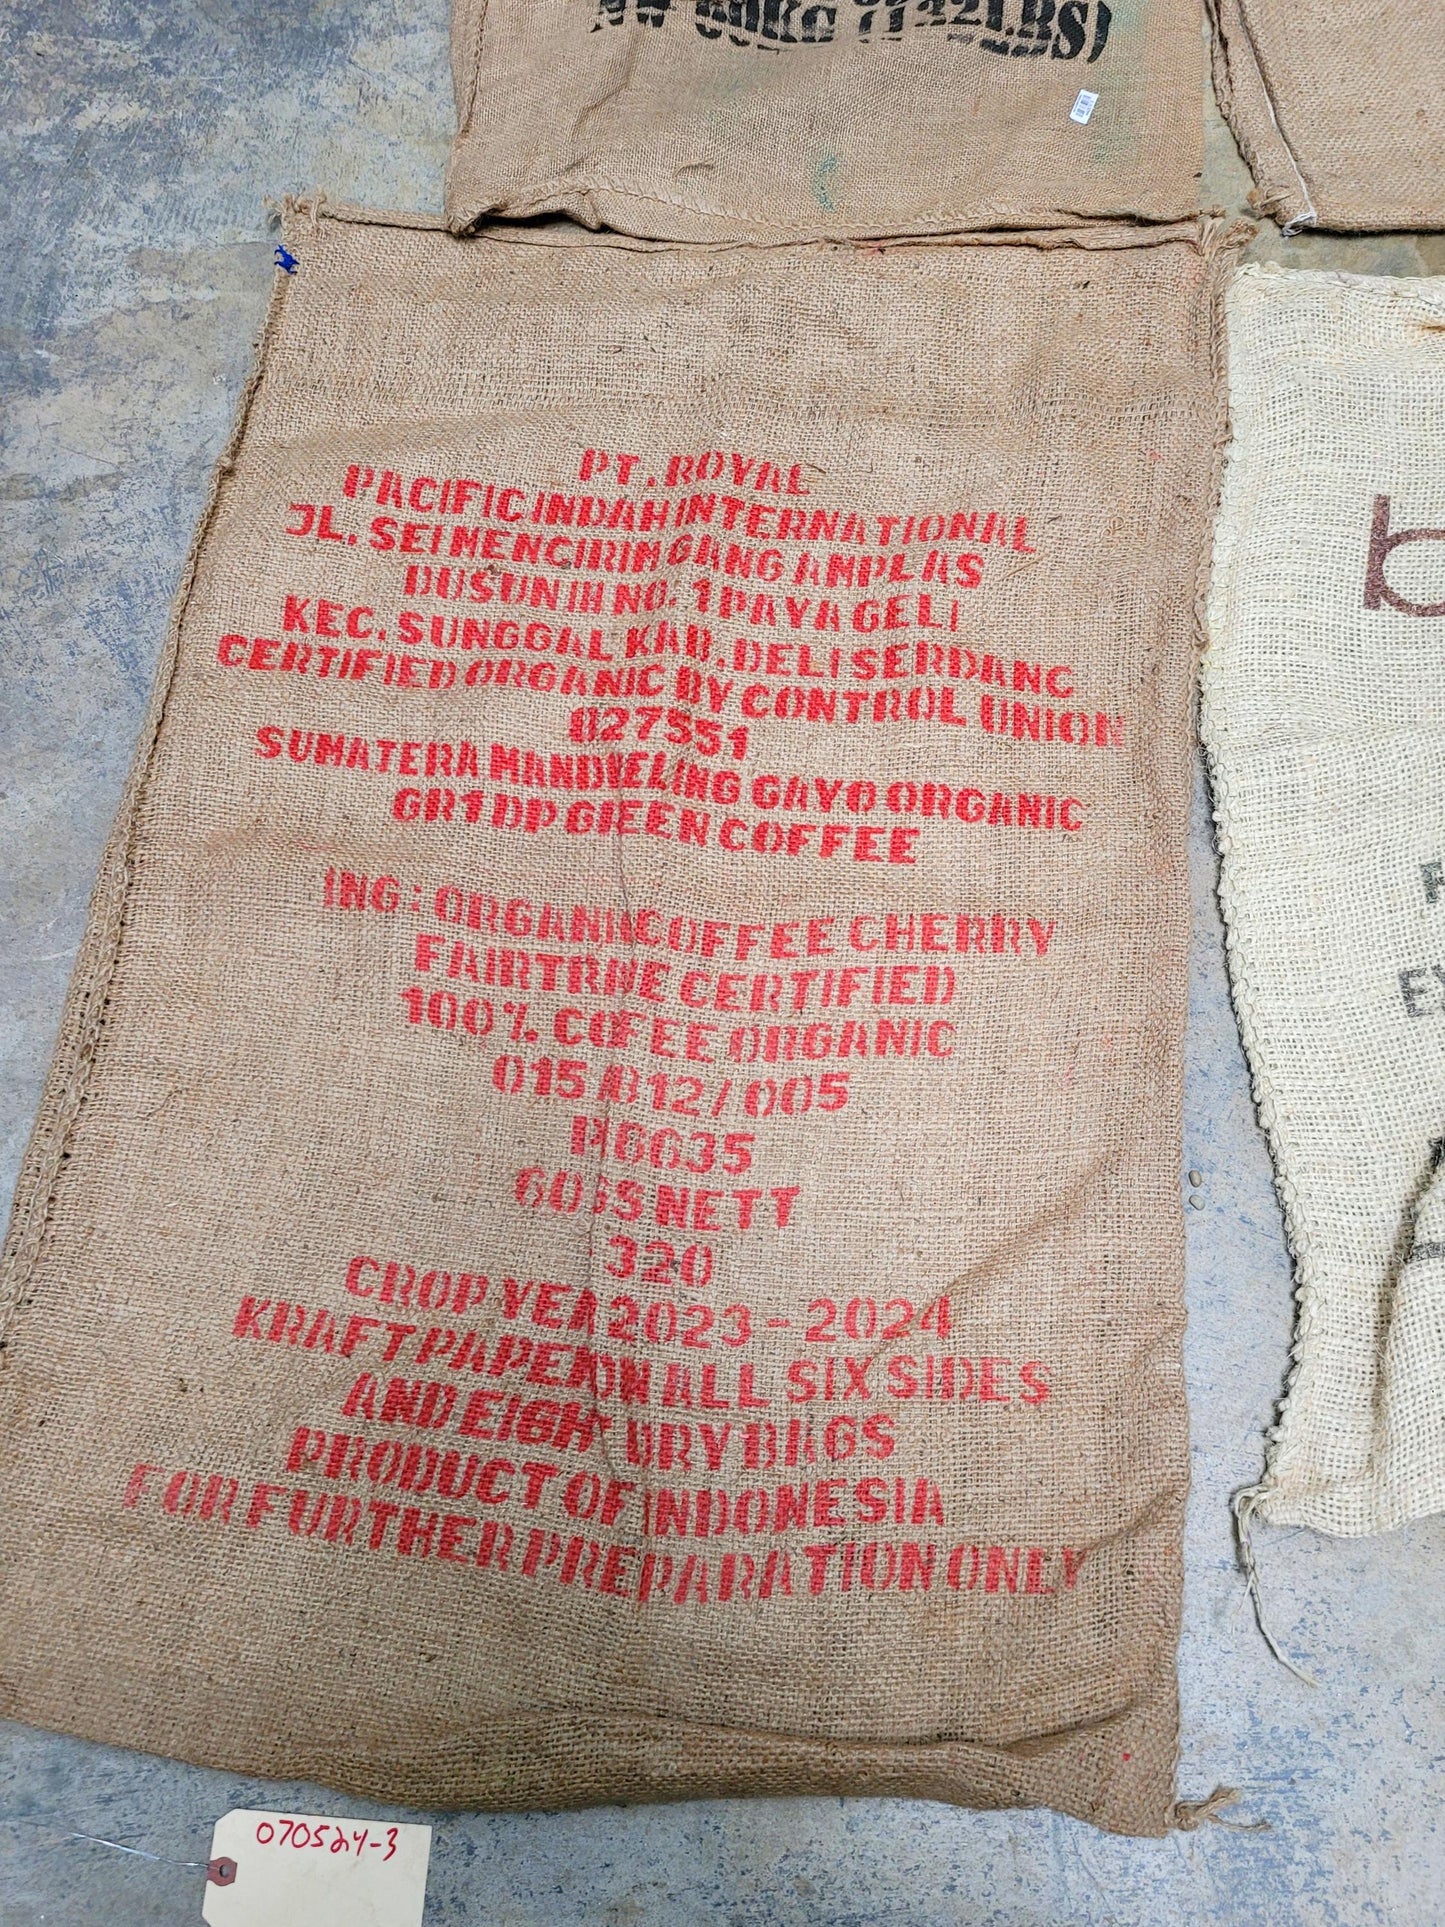 NW 60KG (132LBS)
PT. ROYAL
PACIFIC INDAH INTERNATIONAL
JL. SEI MENCIRIM GANG AMPLAS
DUSUN III NO. 1 PAYA GELI
KEC. SUNGGAL KAB. DELI SERDANG
CERTIFIED ORGANIC BY CONTROL UNION
027551
SUMATERA MANDHELING GAYO ORGANIC
GR1 DP GREEN COFFEE
ING : ORGANIC COFFEE CHERRY
FAIRTRADE CERTIFIED
100% COFEE ORGANIC
015/812/005
P.6635
NETT
320
CROP YEAR 2023 - 2024
KRAFT PAPER ON ALL SIX SIDES
AND EIGHT DRY BAGS
PRODUCT OF INDONESIA
FOR FURTHER PREPARATION ONLY
070524-3